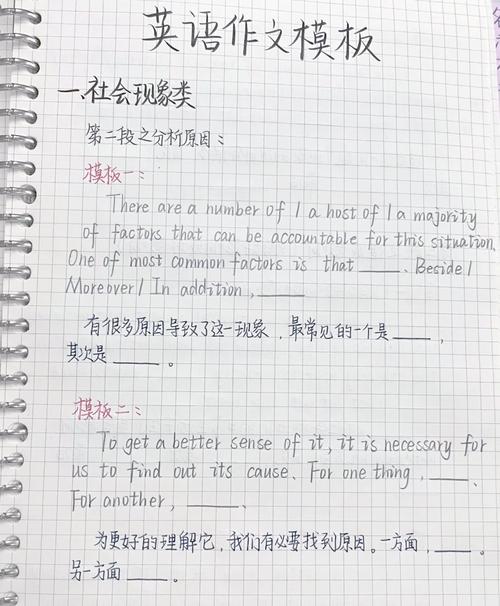 英语作文模板
一、社会现象类
第二段之分析原因：
模板一：
There are a number of / a host of / a majority
of factors that can be accountable for this situation.
One of most common factors is that ____. Beside /
Moreover / In addition, ____
有很多原因导致了这一现象，最常见的一个是____，
其次是____。
模板二：
To get a better sense of it, it is necessary for
us to find out its cause. For one thing, ____.
For another, ____.
为更好的理解它，我们有必要找到原因。一方面，____。
另一方面____。